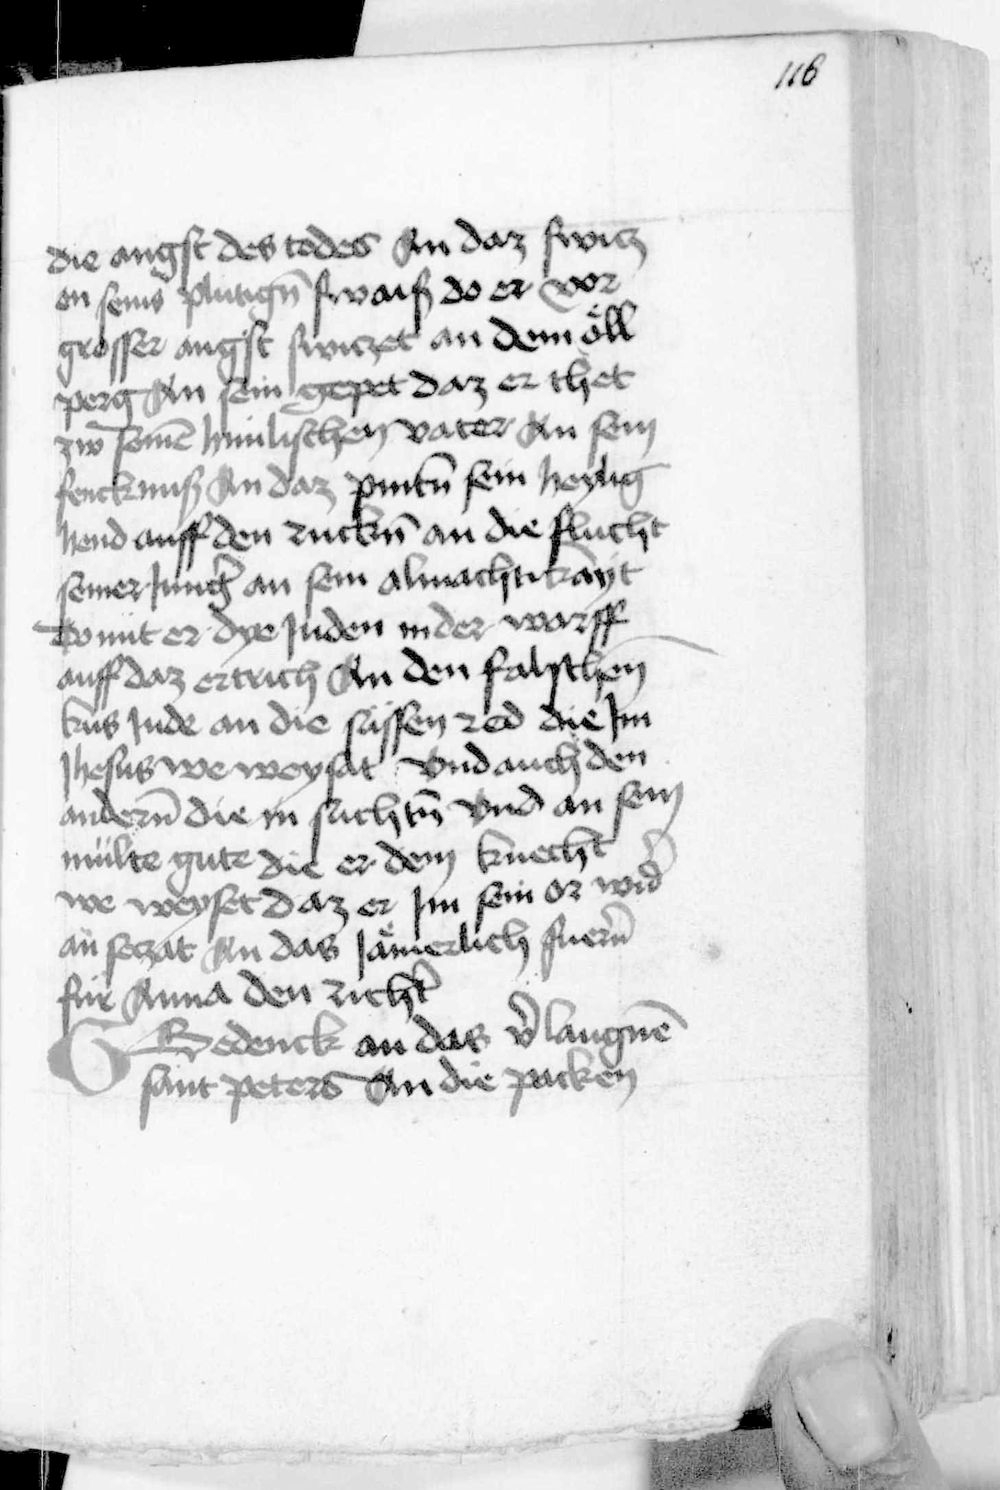 116
die angst des todes An daz switz
en seins plutign̄ swaiß do er vor
grosser angst switzet an dem öll
perg An sein gepet daz er thet
zw seinē himlischen vater An sein
fencknuß An daz pintn̄ sein heylig
hend auff den ruckn̄ an die flucht
seiner Jung̉ an sein almachtikayt
do mit er dye Juden nider warff
auff daz ertrich An den falschen
kus Jude an die sussen red die Im
Jhesus we weysat Vnd auch den
andern̄ die in suchtn̄ Vnd an sein
milte gute die er dem knecht
we weyset daz er Im sein or wid̉
an seczat An das Jämerlich fuern̄
für Anna den richt̉
Gedenck an das v̉laugnē
sant peters An die packen